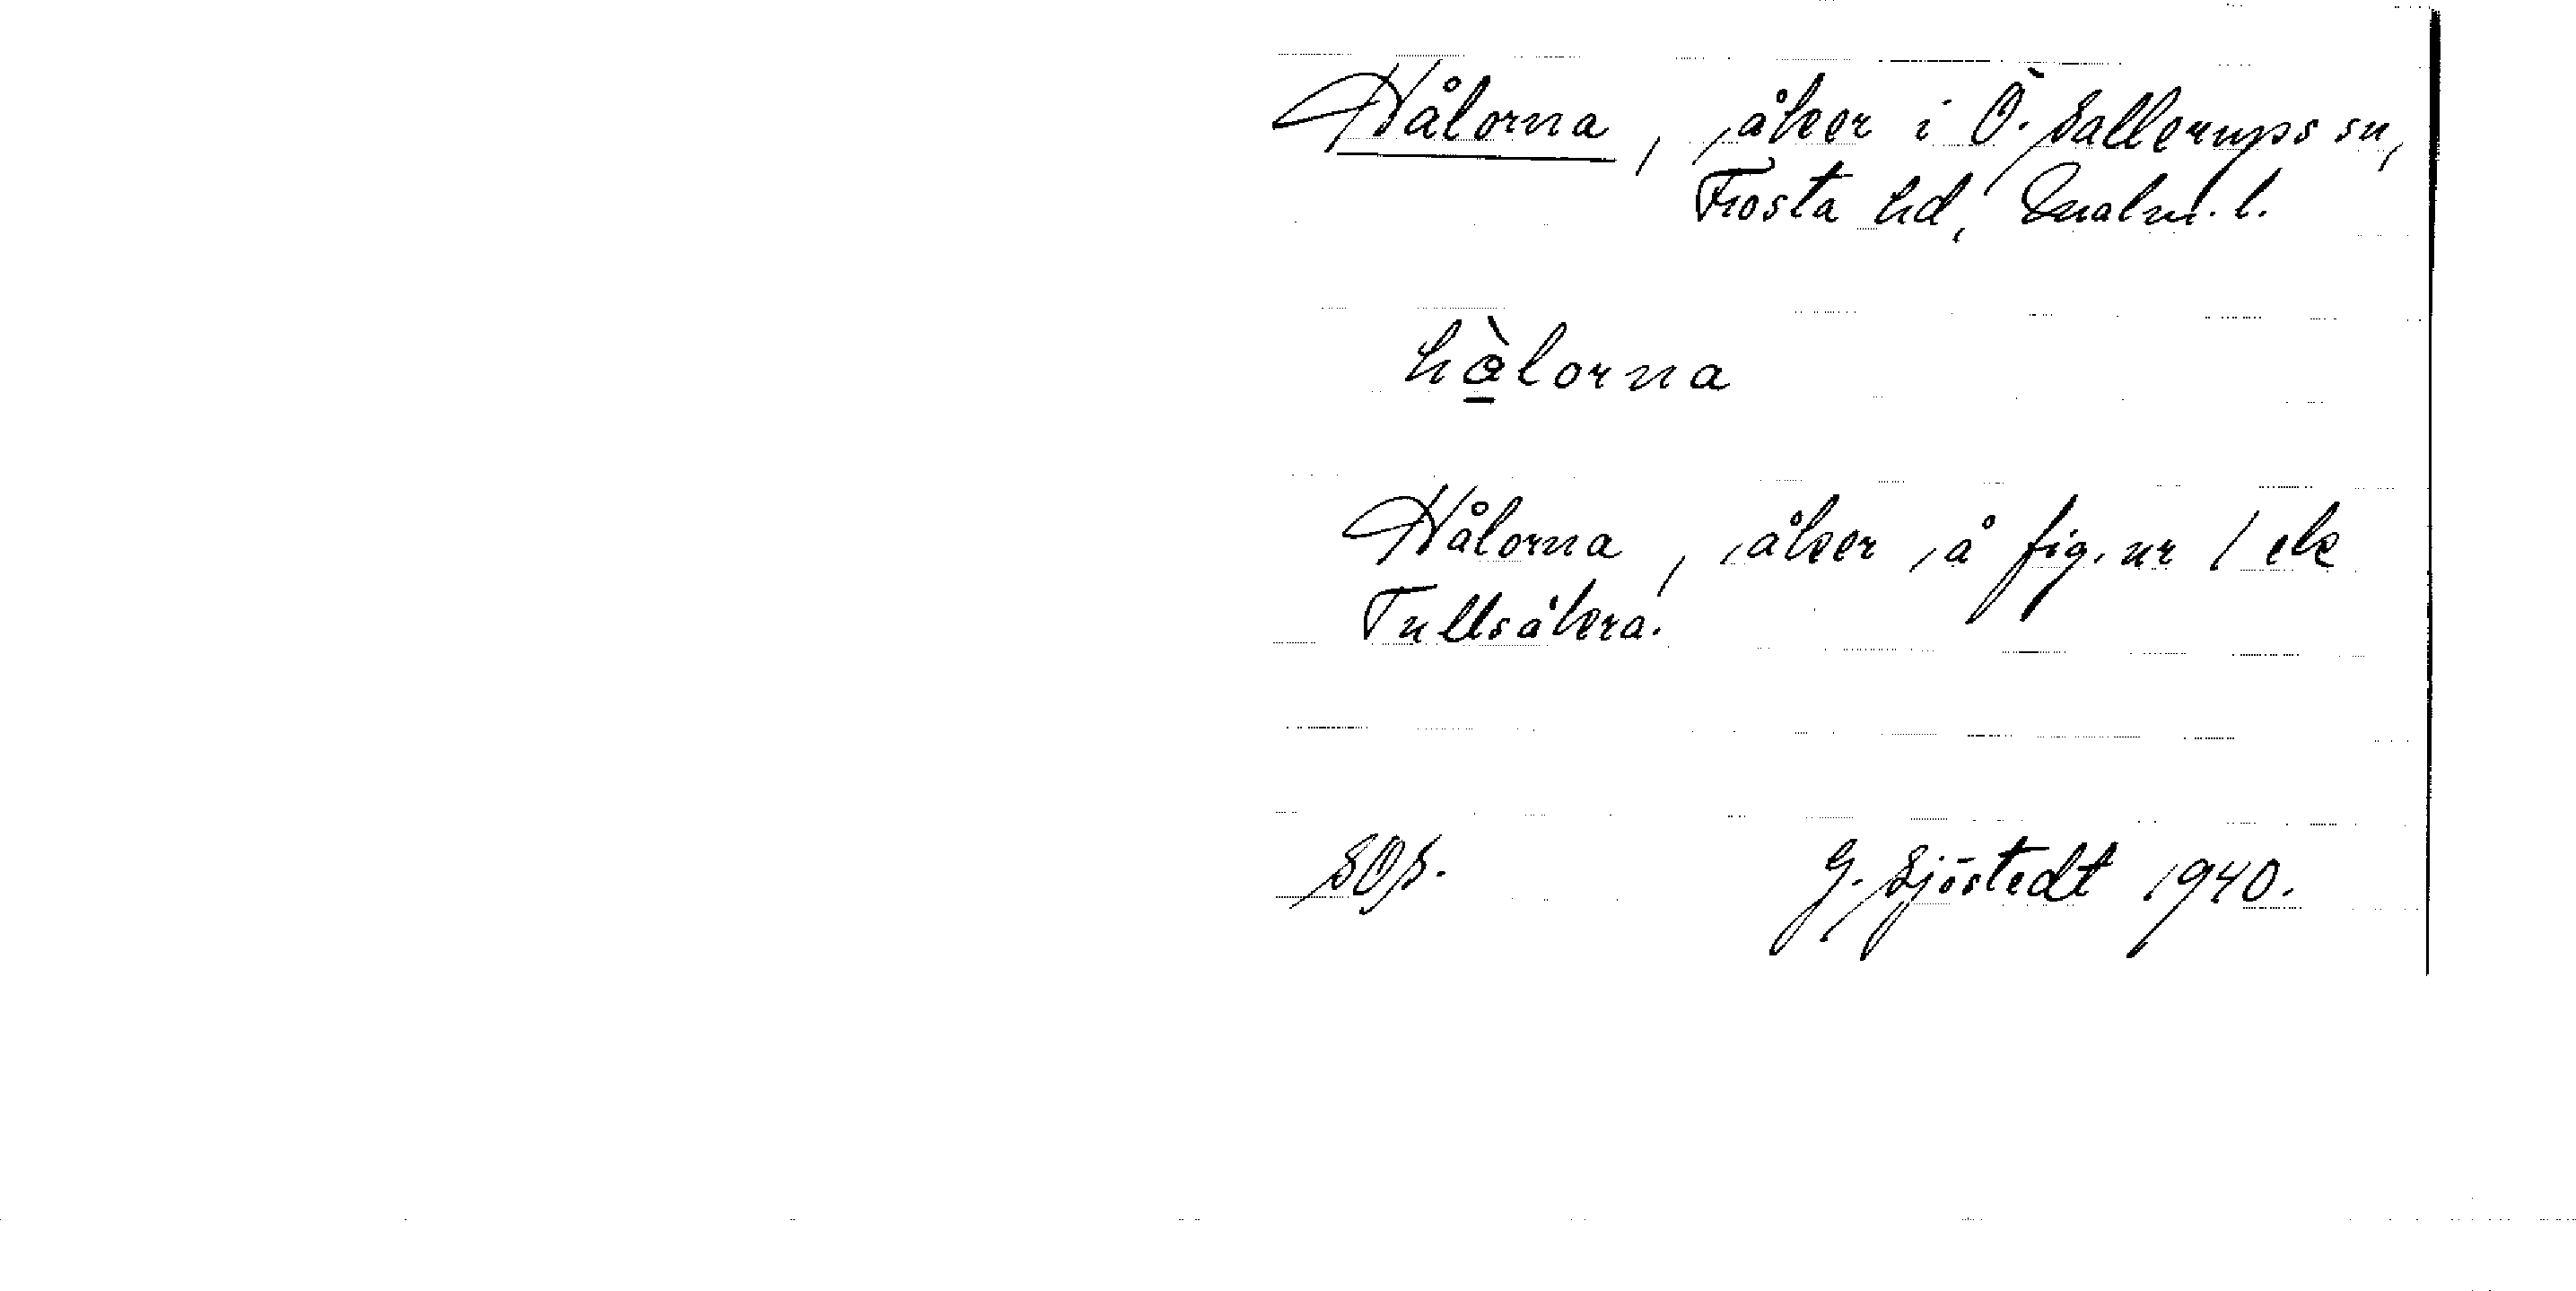 Hålorna, åker i Ö. Sallerups sn,
Frosta hd, Malm. l.
hàlorna
Hålorna, åker å fig. nr 1 ek
Tullsåkra.
SOS.
G. Sjöstedt 1940.